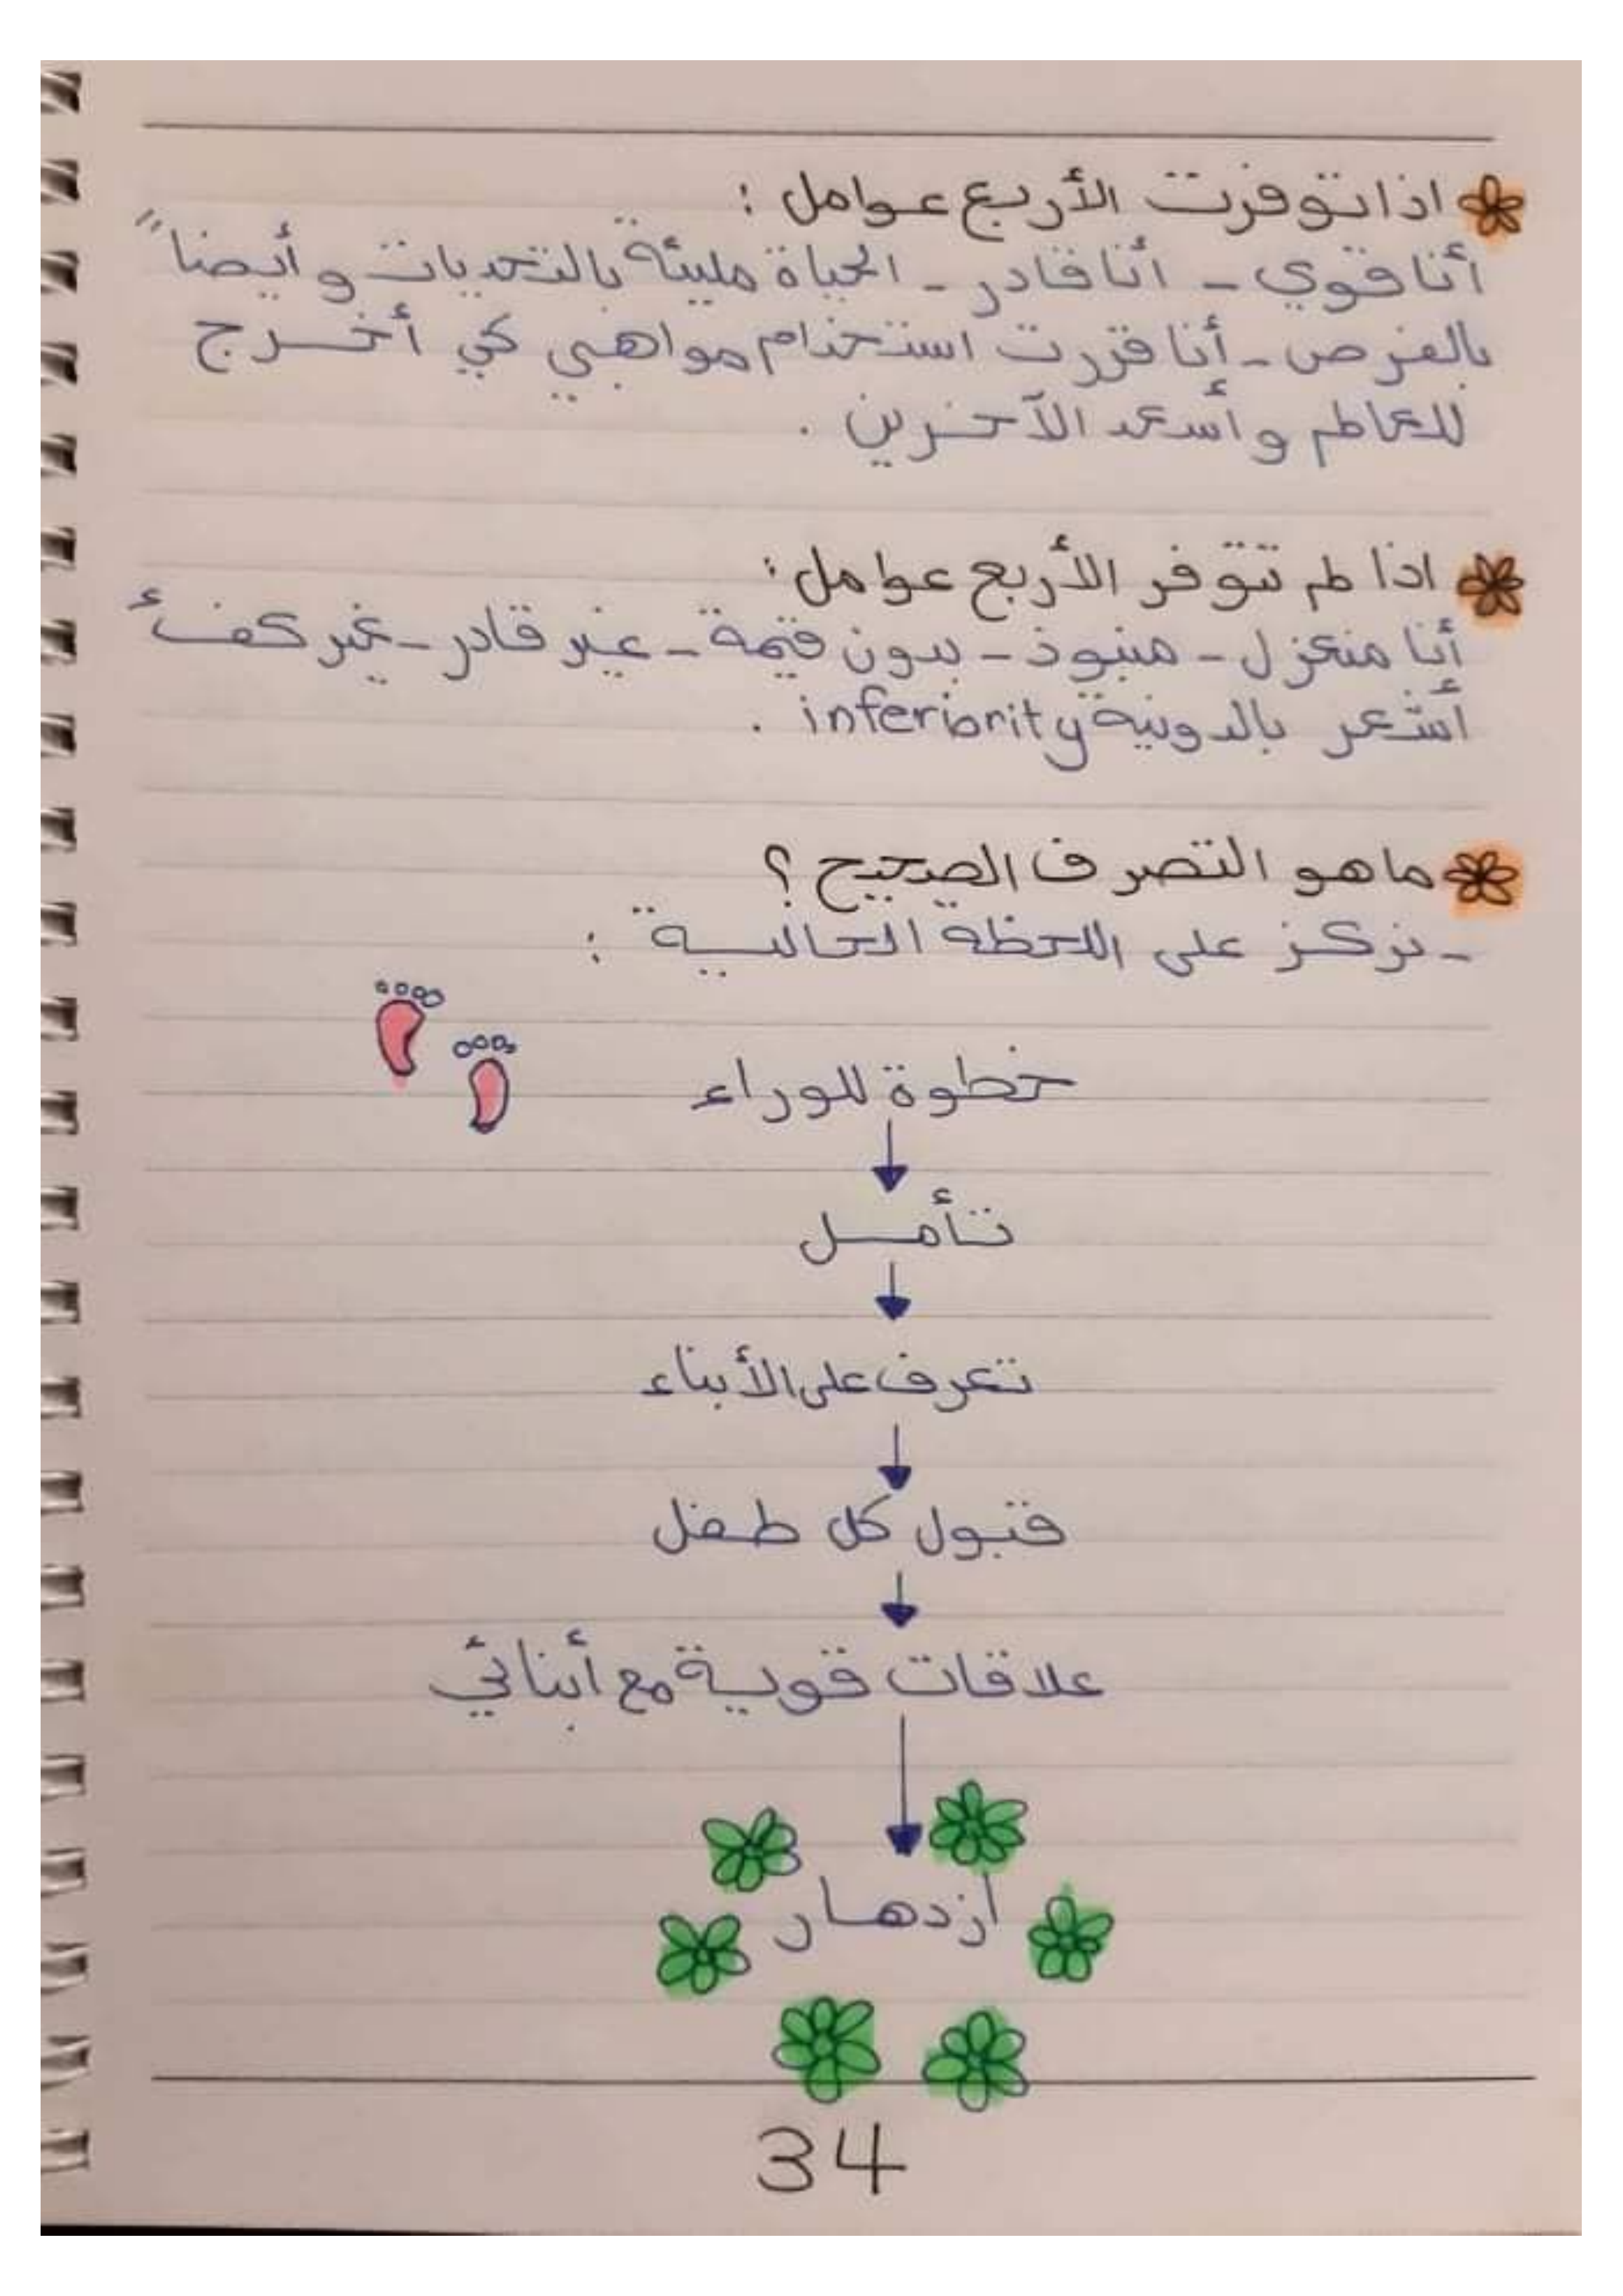 اذا توفرت الأربع عوامل :
أنا قوي - أنا قادر - الحياة مليئة بالتحديات وأيضاً
بالفرص - أنا قررت استخدام مواهبي كي أخرج
للعالم وأسعد الآخرين .
اذا لم تتوفر الأربع عوامل :
أنا منعزل - منبوذ - بدون قيمة - غير قادر - غير كفء
أشعر بالدونية inferiority .
ما هو التصرف الصحيح ؟
- نركز على اللحظة الحالية :
خطوة للوراء
تأمل
تعرف على الأبناء
قبول كل طفل
علاقات قوية مع أبنائي
ازدهار
34